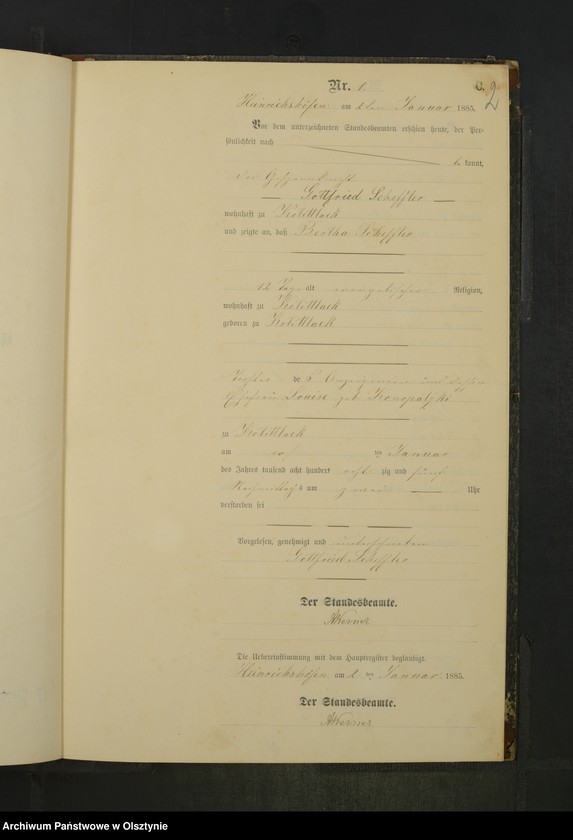 Nr. 1.
C. 2
Heinrichshöfen am 2ten Januar 1885.
Vor dem unterzeichneten Standesbeamten erschien heute, der Per-
sönlichkeit nach
be kannt,
der
Gottfried Scheffler
wohnhaft zu Kolittlack
und zeigte an, daß Bertha Scheffler
12 Tage alt evangelischer Religion,
wohnhaft zu Kolittlack
geboren zu Kolittlack
Tochter de s Anzeigenden und dessen
Ehefrau Louise geb. Konopatzki
zu Kolittlack
am ten Januar
des Jahres tausend acht hundert acht zig und fünf
Nachmittag s um Uhr
verstorben sei
Vorgelesen, genehmigt und unterschrieben
Gottfried Scheffler
Der Standesbeamte.
Die Uebereinstimmung mit dem Hauptregister beglaubigt
Heinrichshöfen am 2 ten Januar 1885.
Der Standesbeamte.
Archiwum Państwowe w Olsztynie